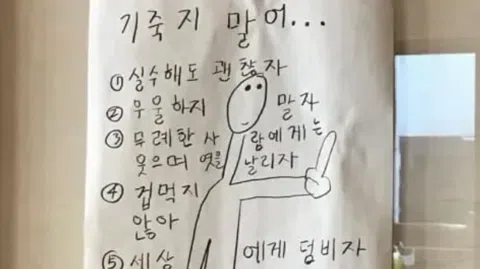 기죽지 말어...
① 실수해도 괜찮자
② 우울하지 말자
③ 무례한 사람에게는
웃으며 엿을 날리자
④ 겁먹지
않아
⑤ 세상에게 덤비자